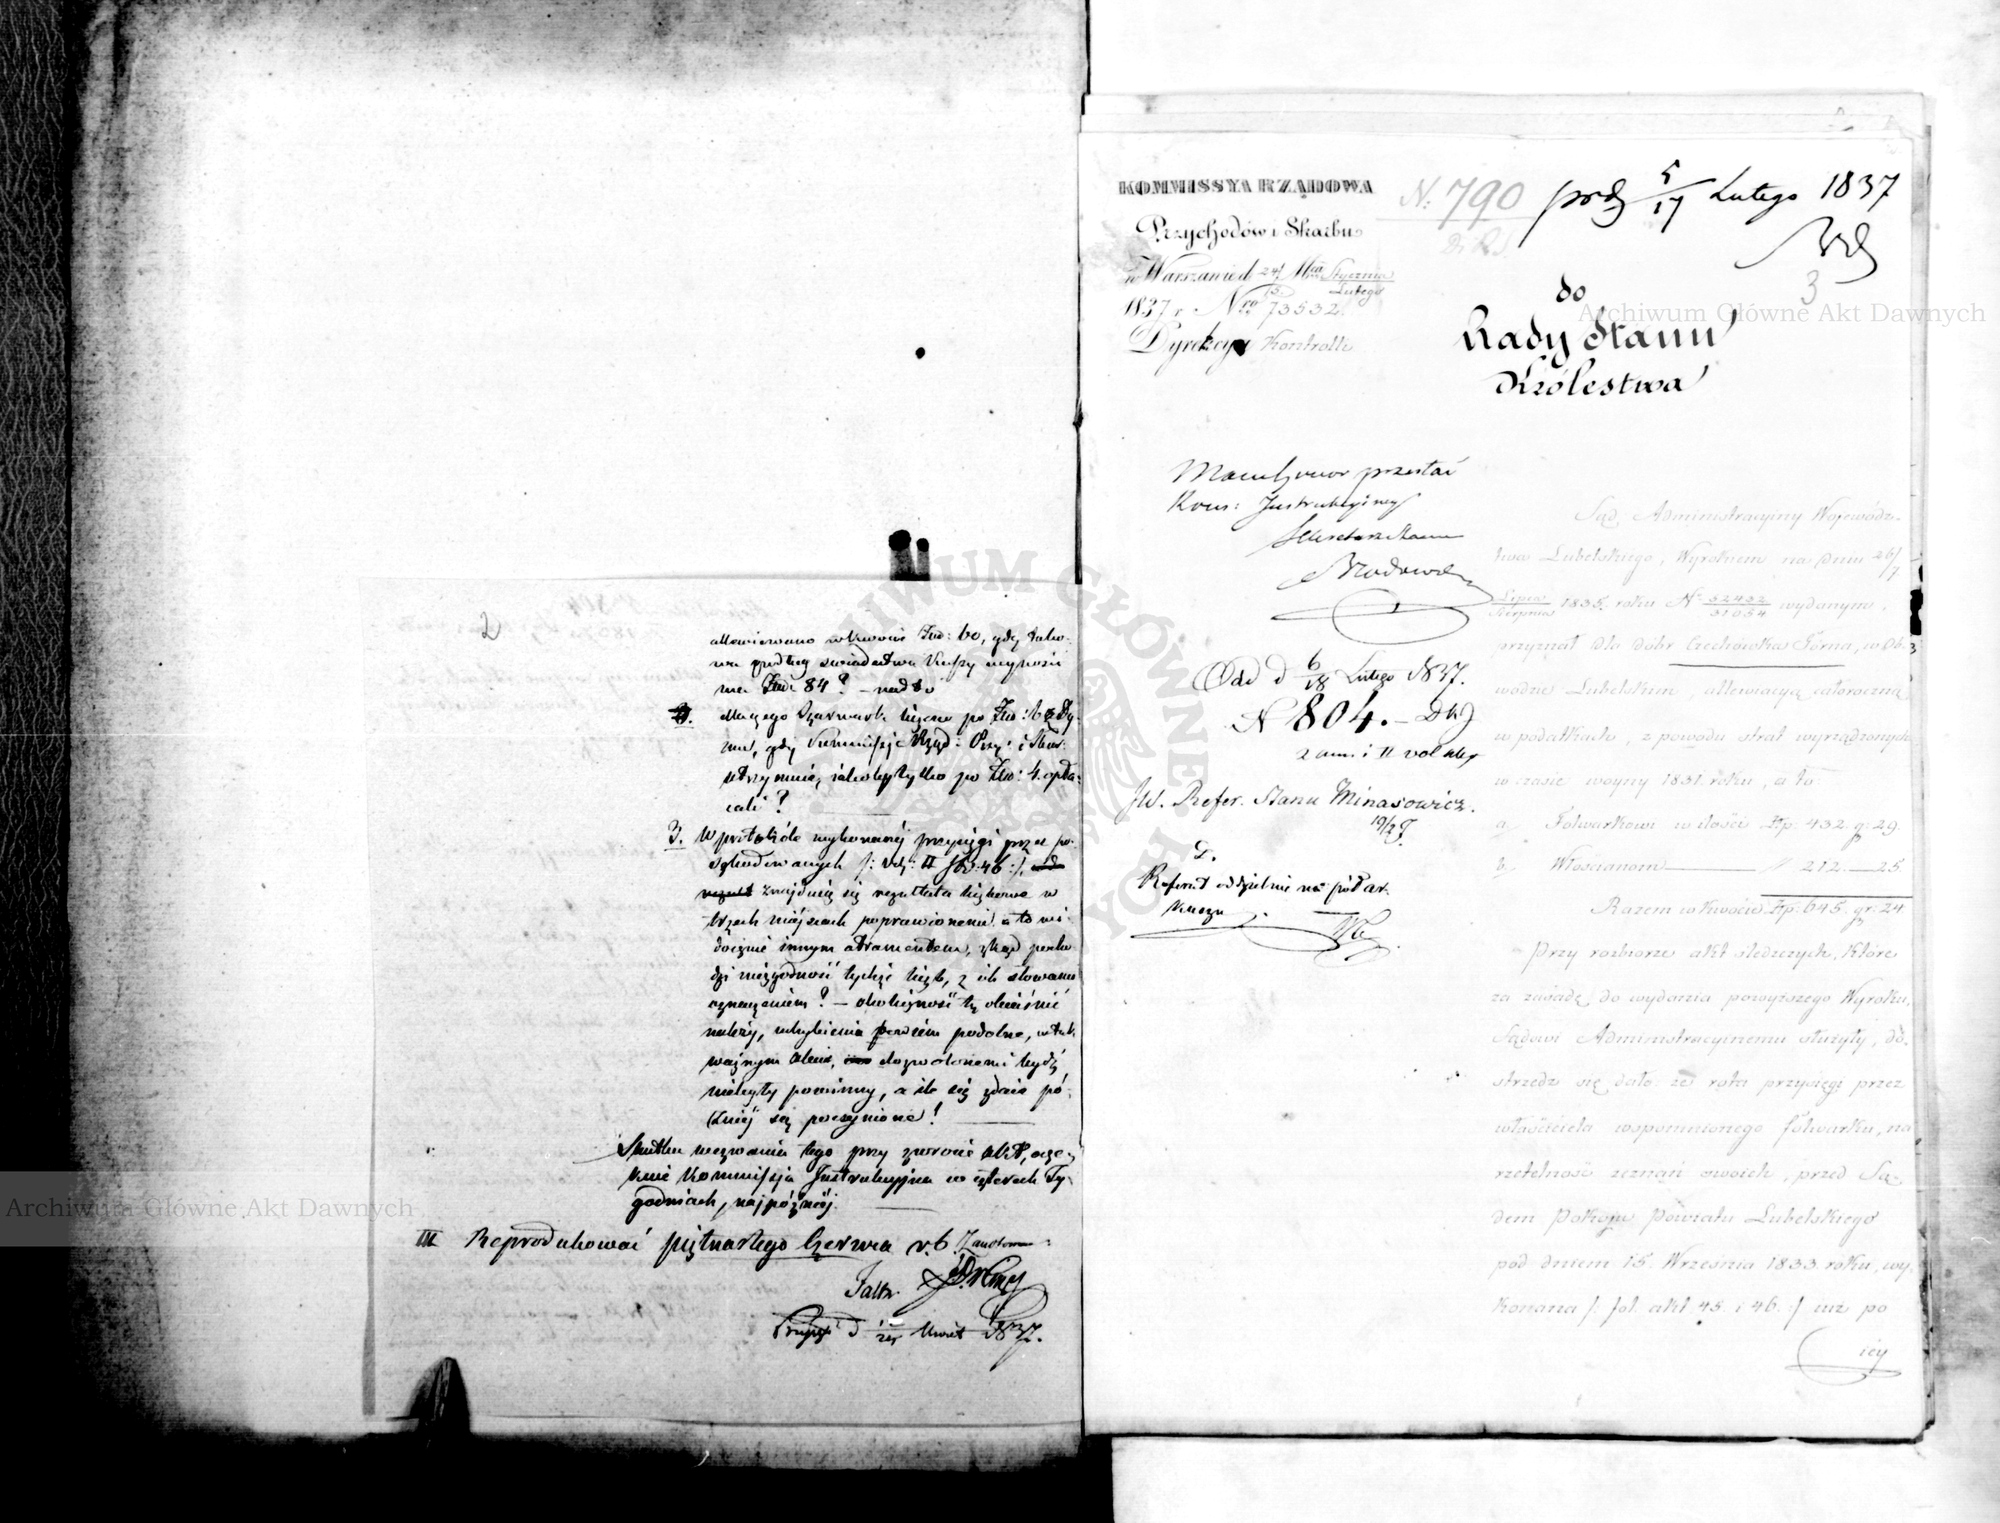 2
allewiowano w kwocie Złw: 60, gdy tako-
wa podług świadectwa Kassy wynosi
ma Złw: 84? — nadto
2. dlaczego Szarwark liczono po Złw: 6 z Dy-
mu, gdy Kommissja Rząd: Przy: i Skar:
utrzymuie, iakoby tylko po Złw: 4. opła-
cali?
3. W protokóle wykonanéj przysięgi przez po-
szkodowanych /: vol: II fol: 46 :/
znajduią się rezultata liczbowe w
trzech miéjscach poprawionemi a to wi-
docznie innym atramentem, zkąd pocho-
dzi niezgodność tychże liczb, z ich słownem
oznaczeniem? — okoliczność tę obiaśnić
należy, uchybienia bowiem podobne, w tak
ważnym akcie, dozwolonemi bydź
niebyły powinny, a ile się zdaie pó-
źniéj są poczynione!
Skutku wezwania tego przy zwrocie akt, ocze-
kuie Kommissja Instrukcyjna w czterech Ty-
godniach, najpóźniéj.
III Reprodukować piętnastego Czerwca r. b.
1837.
KOMMISSYA RZĄDOWA
Przychodów i Skarbu
w Warszawie d. 24/ Mca Stycznia
15. Lutego
1837 r. Nro 73532
Dyrekcya Kontrolli
N: 790 prd 5/17 Lutego 1837
3
do
Rady Stanu
Królestwa
przesłać
Kom: Instrukcyiney
Sekretarz Stanu
Odd d 6/18 Lutego 1837.
N 804.
i II vol akt
JW. Refer. Stanu Minasowicz.
19/2
Referat oddzielnie na pół ar-
kuszu.
Sąd Administracyiny Wojewódz-
twa Lubelskiego, Wyrokiem na dniu 26/7.
Lipca/Sierpnia 1835. roku No 32432/31054 wydanym,
przyznał dla dóbr Czechówka Górna, w Ob-
wodzie Lubelskim allewacyą całoroczną
w podatkach, z powodu strat wyrządzonych
w czasie woyny 1831. roku, a to
a. Folwarkowi w ilości Złp: 432. g: 29.
b. Włościanom — // 212. — 25.
Razem w kwocie Złp: 645. gr: 24.
Przy rozbiorze akt śledczych, które
za zasadę do wydania powyższego Wyroku,
Sądowi Administracyinemu służyły, do-
strzedz się dało że rota przysięgi przez
właściciela wspomnionego folwarku, na
rzetelność zeznań swoich, przed Są-
dem Pokoju Powiatu Lubelskiego
pod dniem 15. Września 1833. roku, wy-
konana /: fol. akt. 45. i 46. :/ już po
iey
Archiwum Główne Akt Dawnych
Archiwum Główne Akt Dawnych
ARCHIWUM GŁÓWNE AKT DAWNYCH